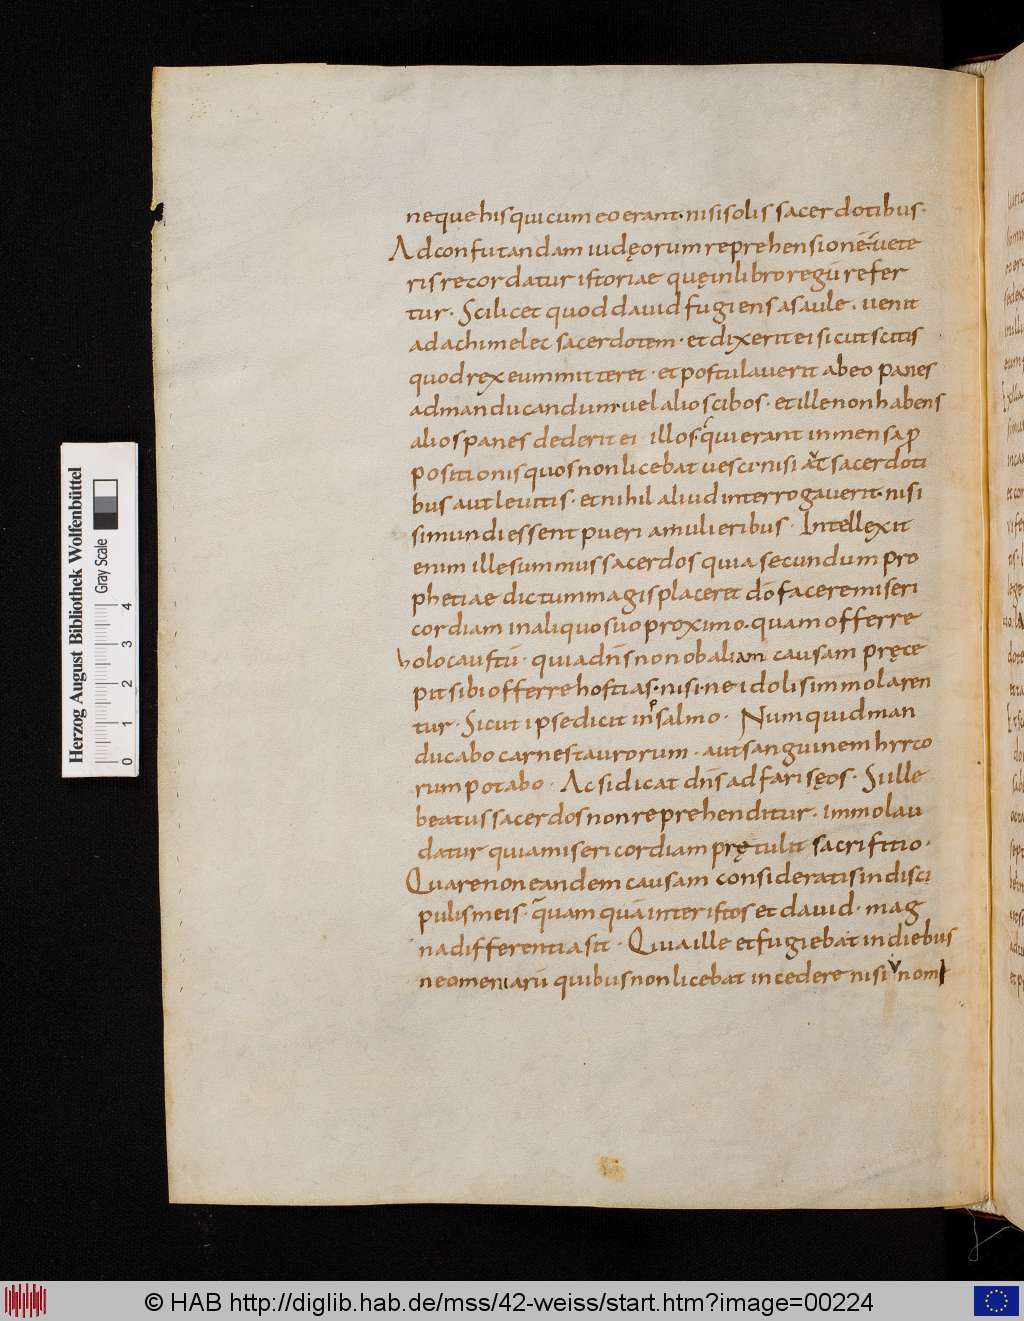 neque his qui cum eo erant· nisi solis sacerdotibus·
Ad confutandam iudęorum reprehensionē· uete
ris recordatur istoriae quę in libro regū refer
tur· Scilicet quod dauid fugiens a saule· uenit
ad achimelec sacerdotem· et dixerit ei sicut scitis
quod rex eum mitteret· et postulauerit ab eo panes
ad manducandum uel alios cibos· et ille non habens
alios panes dederit ei illos· qui erant in mensa ꝓ
positionis quos non licebat uesci nisi aut sacerdoti
bus aut leuitis· et nihil aliud interrogauerit· nisi
si mundi essent pueri a mulieribus· Intellexit
enim ille summus sacerdos quia secundum pro
phetiae dictum magis placeret dō facere miseri
cordiam in aliquo suo proximo· quam offerre
holocaustū· quia dn̄s non ob aliam causam pręce
pit sibi offerre hostias· nisi· ne idolis immolaren
tur· Sicut ipse dicit in psalmo· Numquid man
ducabo carnes taurorum· aut sanguinem hirco
rum potabo· Ac si dicat dn̄s ad farisęos· Si ille
beatus sacerdos non reprehenditur· immo lau
datur quia misericordiam prętulit sacrifitio·
Quare non eandem causam consideratis in disci
pulis meis· quam quā inter istos et dauid· mag
na differentia sit· Quia ille et fugiebat in diebus
neomeniarū quibus non licebat incedere nisi
Herzog August Bibliothek Wolfenbüttel
Gray Scale
0 1 2 3 4
© HAB http://diglib.hab.de/mss/42-weiss/start.htm?image=00224